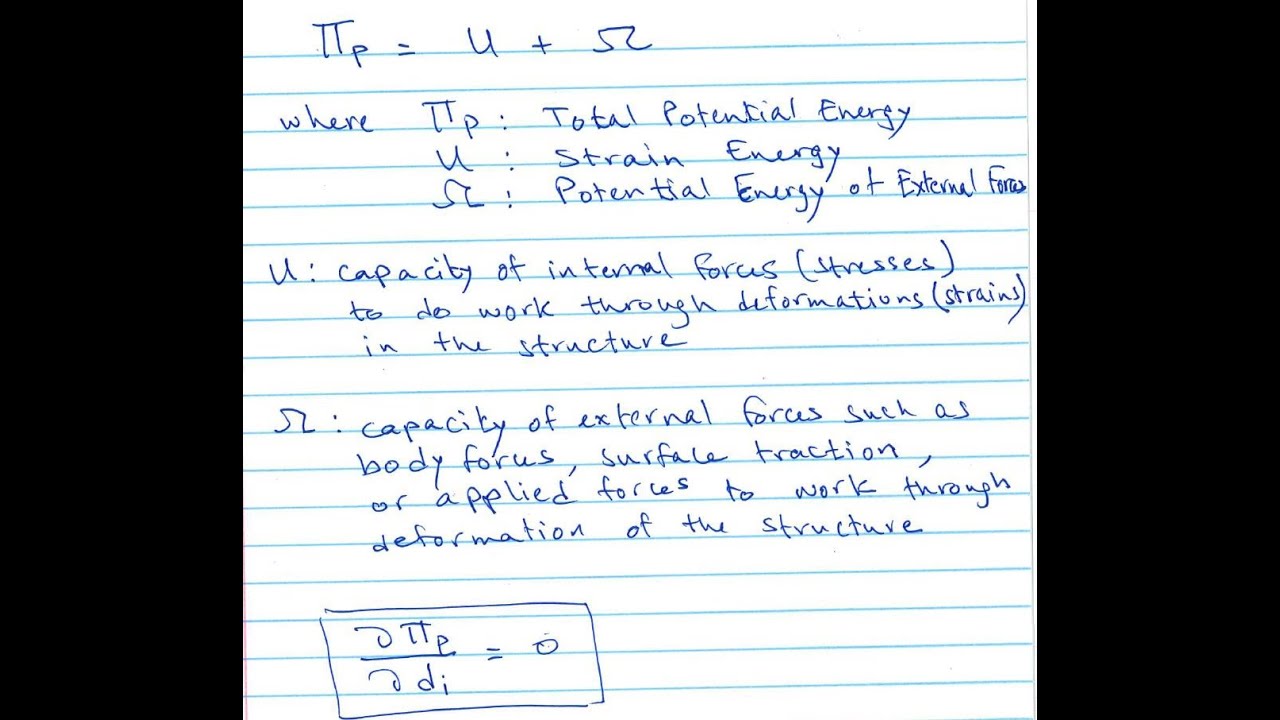 Πp = U + Ω
where Πp : Total Potential Energy
U : Strain Energy
Ω : Potential Energy of External Forces
U : capacity of internal forces (stresses)
to do work through deformations (strains)
in the structure
Ω : capacity of external forces such as
body forces, surface traction,
or applied forces to work through
deformation of the structure
∂Πp / ∂di = 0